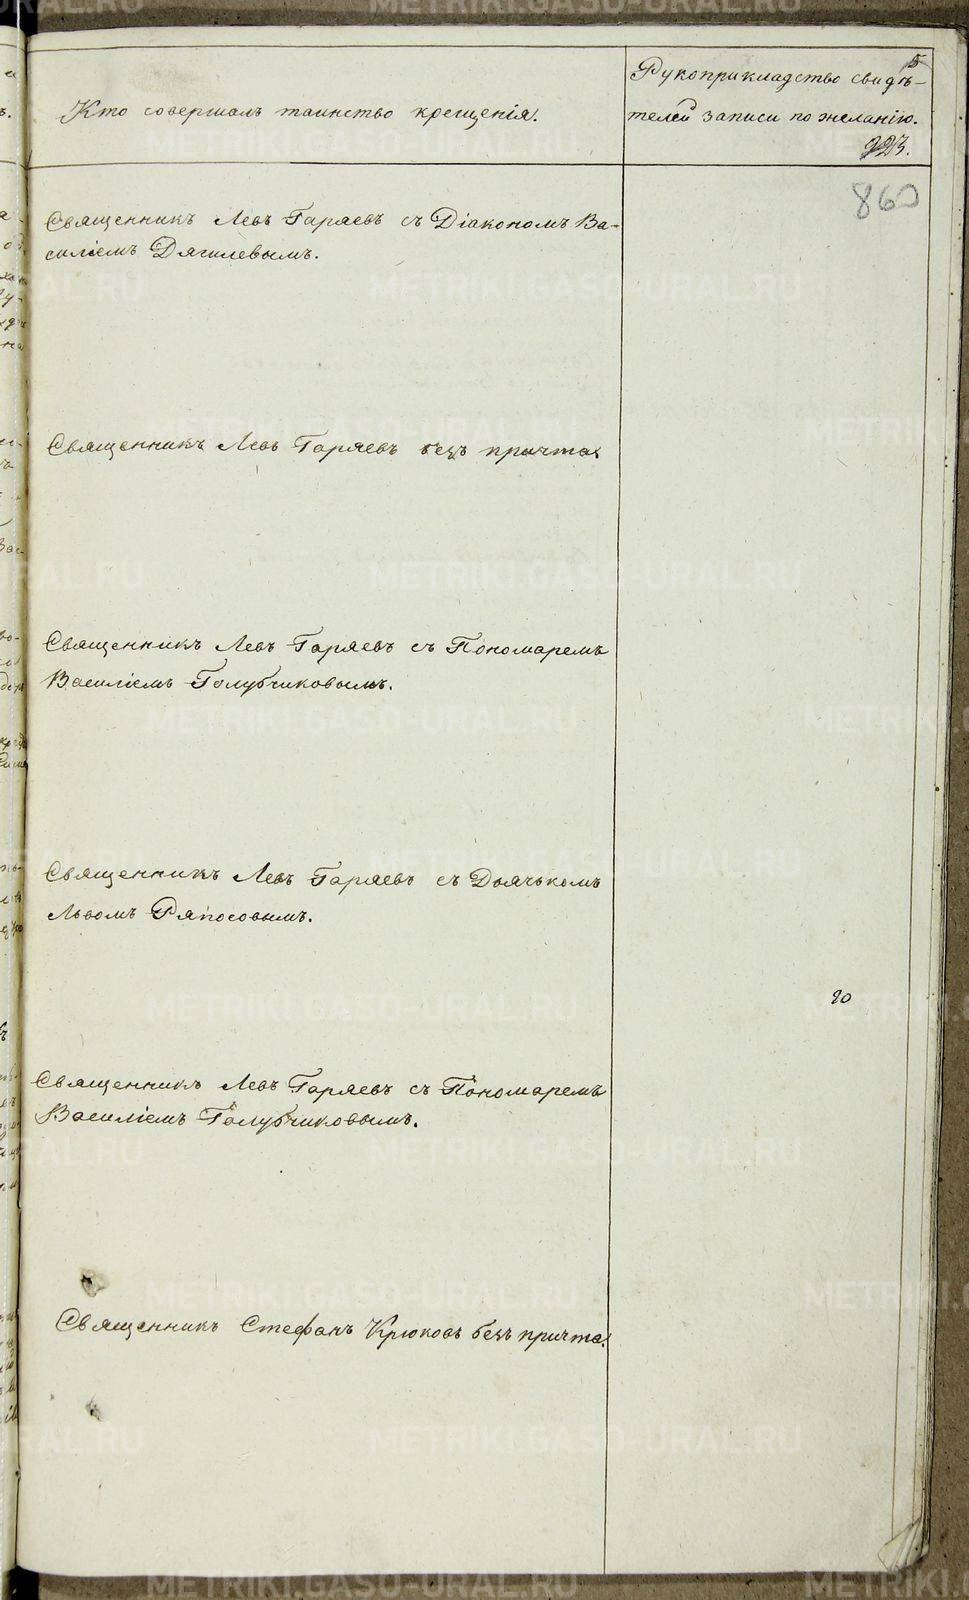 5
Рукоприкладство свидѣ-
Кто совершалъ таинство крещенія.
телей записи по желанію.
860
Священникъ Левъ Гаряевъ съ Діакономъ Ва-
силіемъ Дягилевымъ.
Священникъ Левъ Гаряевъ безъ причта.
Священникъ Левъ Гаряевъ съ Пономаремъ
Василіемъ Голубчиковымъ.
Священникъ Левъ Гаряевъ съ Дьячькомъ
Львомъ Ряпосовымъ.
20
Священникъ Левъ Гаряевъ съ Пономаремъ
Василіемъ Голубчиковымъ.
Священникъ Стефанъ Крюковъ безъ причта.
METRIKI.GASO-URAL.RU